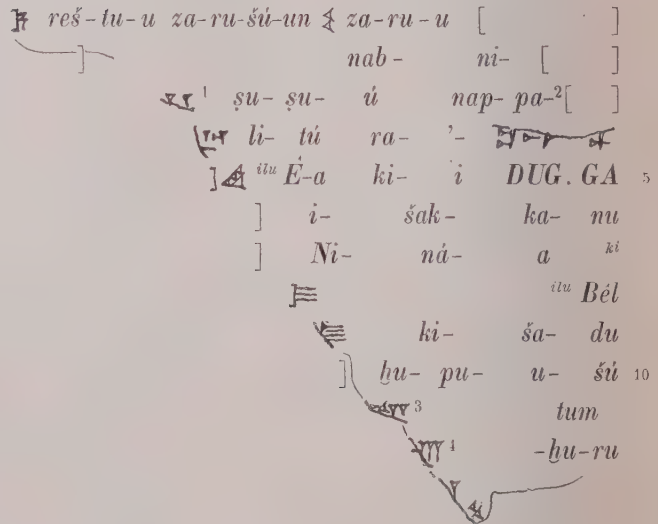 reš-tu-u za-ru-šú-un za-ru-u [ ]
] nab- ni- [ ]
1 ṣu- ṣu- ú nap- pa-2[ ]
li- tú ra- '-
] ilu É-a ki- i DUG.GA 5
] i- šak- ka- nu
] Ni- ná- a ki
ilu Bêl
ki- ša- du
] ḫu- pu- u- šú 10
3 tum
4 -ḫu-ru